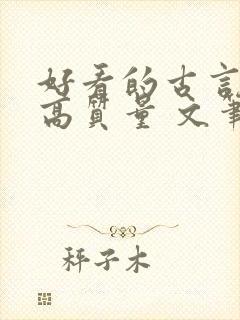 好看的古言
高质量 文笔
秤子木